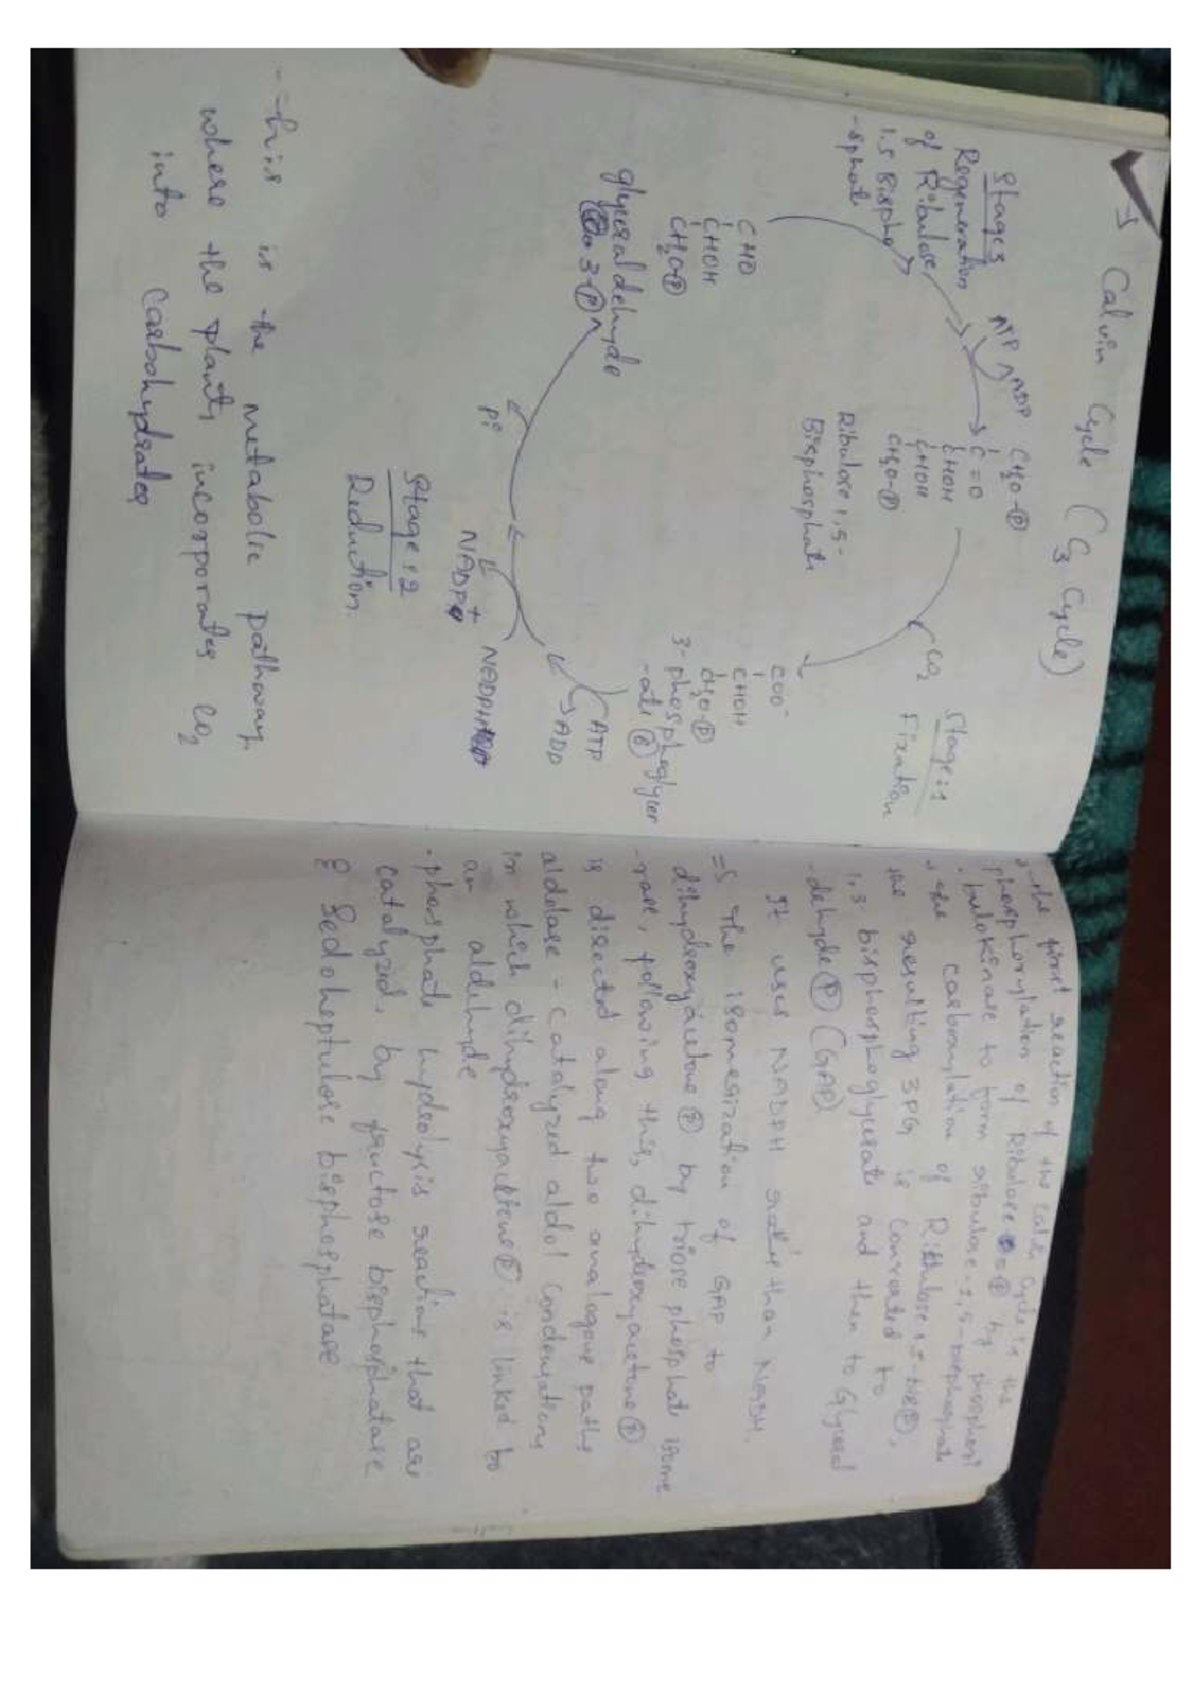 Calvin Cycle (C3 Cycle)
Stage 3
Regeneration
of Ribulose
1,5 Bispho
-sphate
ATP
ADP
CH2O-Ⓟ
C=O
CHOH
CHOH
CH2O-Ⓟ
Ribulose 1,5-
Bisphosphate
CO2
Stage:1
Fixation
COO-
CHOH
CH2O-Ⓟ
3-phosphoglycer
-ate
ATP
ADP
NADPH
NADP+
Pi
Stage:2
Reduction.
glyceraldehyde
3-Ⓟ
CHO
CHOH
CH2O-Ⓟ
-this is the metabolic pathway
where the plants incorporates CO2
into Carbohydrates
the first reaction of the Calvin Cycle is the
phosphorylation of Ribulose Ⓟ by phosphori
-bulokinase to form ribulose-1,5-bisphosphate
the carboxylation of Ribulose
the resulting 3PG is Converted to
1,3-bisphosphoglycerate and then to Glyceral
-dehyde Ⓟ (GAP)
It uses NADPH rather than NADH.
=> The isomerization of GAP to
dihydroxyacetone Ⓟ by triose phosphate isome
-rase, following this, dihydroxyacetone Ⓟ
is directed along two analogous paths
aldolase - catalyzed aldol Condensations
in which dihydroxyacetone Ⓟ is linked to
an aldehyde
·phosphate hydrolysis reactions that are
Catalyzed, by fructose bisphosphatase
& Sedoheptulose bisphosphatase